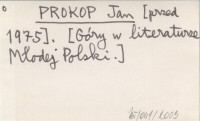 PROKOP Jan [przed
1975]. [Góry w literaturze
Młodej Polski.]